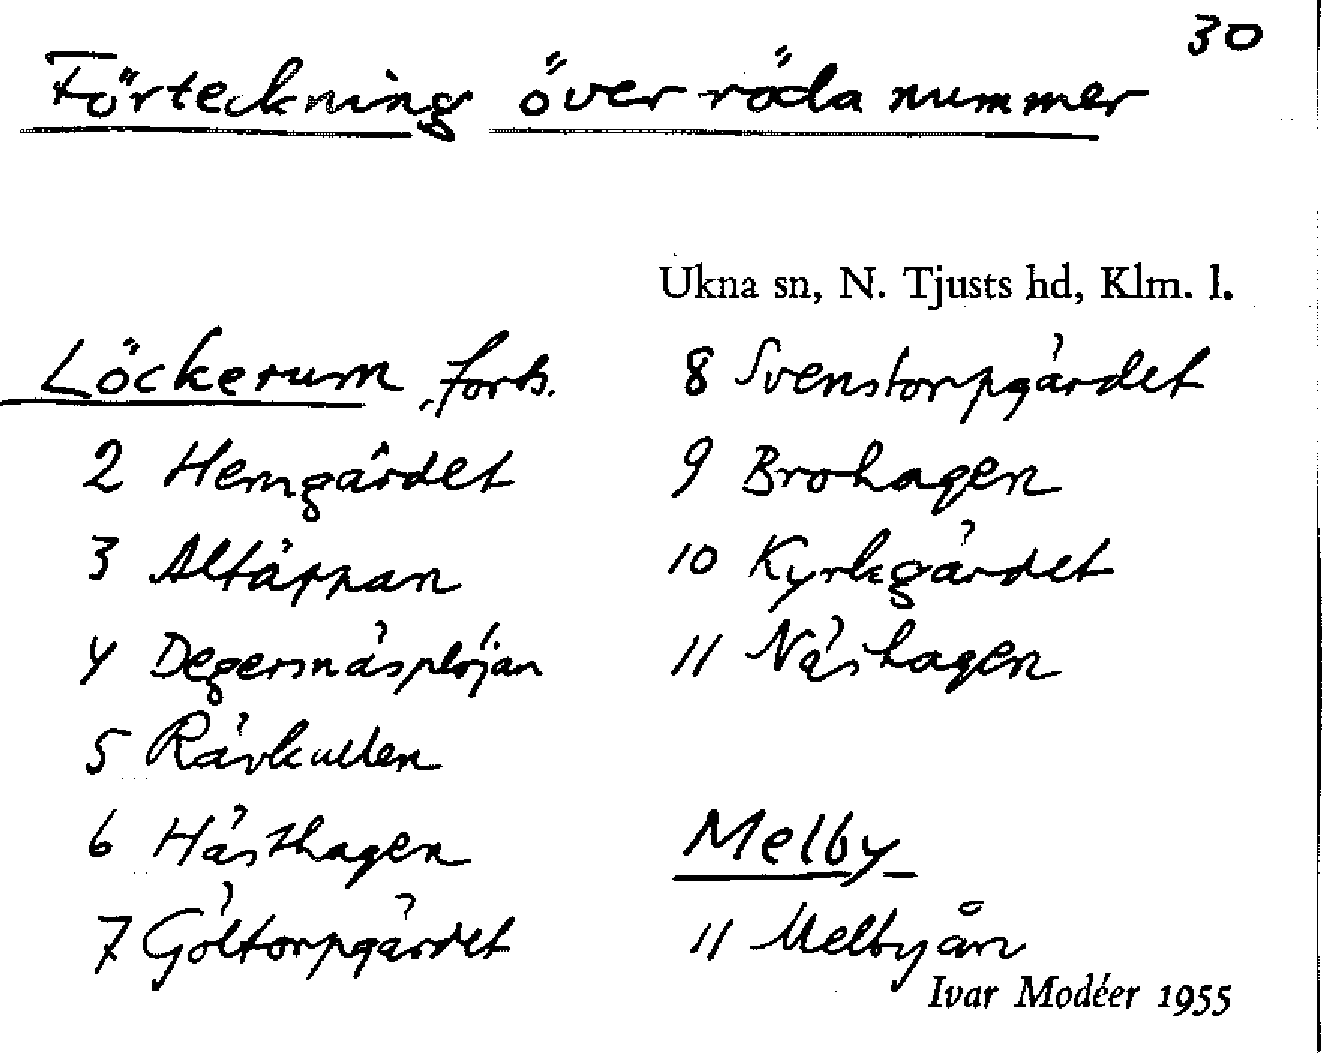 30
Förteckning över röda nummer
Ukna sn, N. Tjusts hd, Klm. l.
Löckerum, forts.
2 Hemgärdet
3 Altäppan
4 Degersnäsplöjan
5 Rävkullen
6 Hästhagen
7 Göltorpgärdet
8 Svenstorpgärdet
9 Brohagen
10 Kyrkgärdet
11 Näshagen
Melby
11 Melbyån
Ivar Modéer 1955